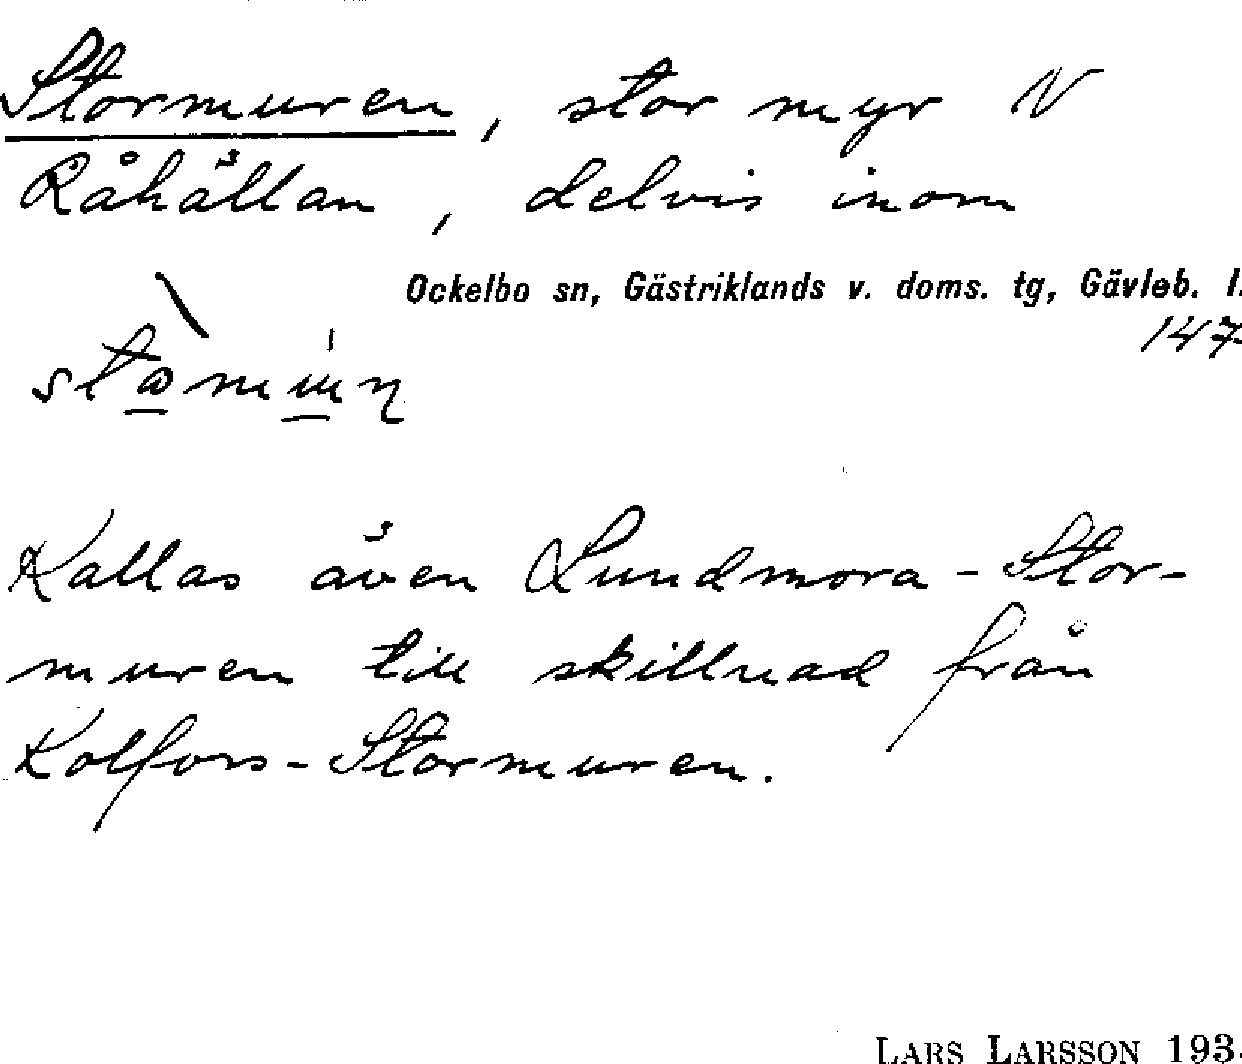 Stormuren, stor myr N
Råhällan, delvis inom
Ockelbo sn, Gästriklands v. doms. tg, Gävleb. l.
147
Kallas även Lundmora-Stor-
muren till skillnad från
Kolfors-Stormuren.
LARS LARSSON 193